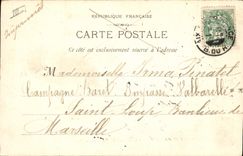 RÉPUBLIQUE FRANÇAISE
CARTE POSTALE
Ce côté est exclusivement réservé à l'adresse
Mademoiselle Irma Pinatel
Campagne Baret, Impasse Valbarelle
Saint Loup Banlieue de
Marseille